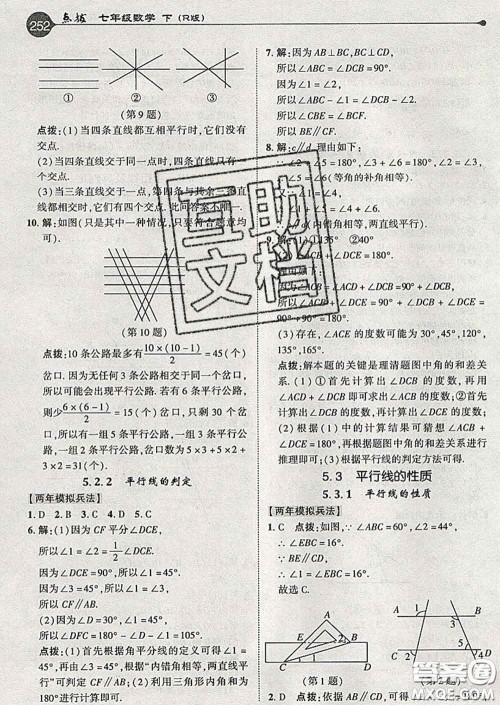 252 点拨 七年级数学 下(R版)
① ② ③
(第9题)
点拨:(1)当四条直线都互相平行时,它们没有
交点.
(2)当四条直线交于同一点时,四条直线只有一
个交点.
(3)当三条直线交于一点,第四条与其余三条
直线,它们有四个交点.此问答案不唯一.
10. 解:如图(只是其中一种情况,只要符合题意均
可).
(第10题)
点拨:10条公路最多有10×(10-1)/2=45(个)
岔口.因为无任何3条公路交于同一岔口,
所以可能会出现平行公路.若有6条平行公路,
则少6×(6-1)/2=15(个)岔口,只剩30个岔
口.所以有一组5条平行公路,有一组6条平
行公路,岔口数为5×3+5×2+
3×2=31(个).
5.2.2 平行线的判定
【两年模拟兵法】
1. D 2. B 3. D 4. D 5. B
6. 解:(1)因为CF平分∠DCE,
所以∠1=∠2=1/2∠DCE.
因为∠DCE=90°,所以∠1=45°.
因为∠3=45°,所以∠1=∠3.
所以CF∥AB.
(2)因为∠D=30°,∠1=45°,
所以∠DFC=180°-30°-45°=105°.
点拨:(1)首先根据角平分线的定义可得∠1
=45°,再由∠3=45°,可得∠1=∠3,再
根据“内错角相等,两直线平行”可判定出
AB∥CF;(2)利用三角形内角和为
180°进行计算即可.
7. 解:因为AB⊥BC,BC⊥CD,
所以∠ABC=∠DCB=90°.
因为∠1=∠2,
所以∠ABC-∠1=∠DCB-∠2.
所以∠CBE=∠BCF.
所以BE∥CF.
8. 解:c∥d.理由如下:
∠2+∠5=180°,∠3+∠6=180°,
∠5=∠6(等角的补角相等).
c∥d(内错角相等,两直线平行).
9. 解:(1)①135° ②40°
∠DCE=180°.
理由如下:
因为∠ACB=∠ACD+∠DCB=90°+∠DCB,
所以∠ACB+∠DCE=90°+∠DCB+∠DCE=
90°+90°=180°.
(3)存在,∠ACE的度数可能为30°,45°,120°,
135°,165°.
点拨:解本题的关键是理清题图中角的和差关
系.(1)①首先计算出∠DCB的度数,再用
∠DCB+90°即可求出∠ACB的度数;②首先计
算出∠DCB的度数,再计算出∠DCE的度数即
可.(2)根据(1)中的计算结果可猜想∠ACB
+∠DCE=180°,再根据题图中角的和差关系进行
推理即可.(3)根据平行线的判定方法可得.
5.3 平行线的性质
5.3.1 平行线的性质
【两年模拟兵法】
1. C 点拨:如图,∵∠ABC=60°,∠2=44°,
∴∠EBC=16°.
∵BE∥CD,
∴∠1=∠EBC=16°.
故选C.
(第1题) (第2题)
2. D 点拨:依据AB∥CD,